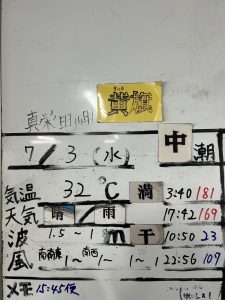 きいろ
黄旗
真栄田岬
中潮
7/3(水)
気温 32℃ 満 3:40 181
天気 晴/雨 17:42 169
波 1.5~1m 干 10:50 23
風 南南東1~ 南西1~1 22:56 109
メモ 15:45便